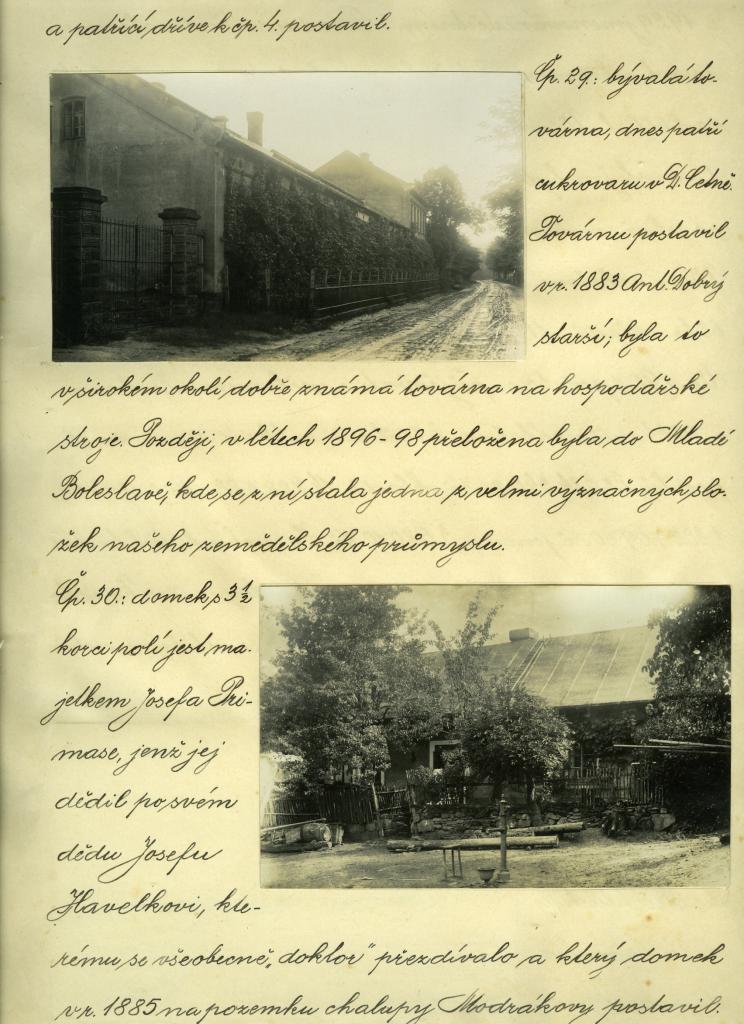 a patřící dříve k čp. 4. postavil.
Čp. 29.: bývalá to-
várna, dnes patří
cukrovaru v D. Cetně.
Továrnu postavil
v r. 1883 Ant. Dobrý
starší; byla to
v širokém okolí dobře známá továrna na hospodářské
stroje. Později, v létech 1896-98 přeložena byla do Mladé
Boleslavě, kde se z ní stala jedna z velmi význačných slo-
žek našeho zemědělského průmyslu.
Čp. 30.: domek s 3 1/2
korci polí jest ma-
jetkem Josefa Pri-
mase, jenž jej
dědil po svém
dědu Josefu
Havelkovi, kte-
rému se všeobecně „doktor" přezdívalo a který domek
v r. 1885 na pozemku chalupy Modrákovy postavil.